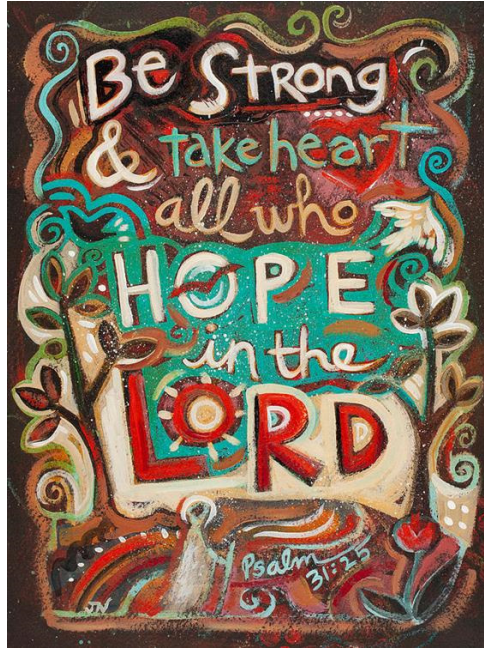 Be Strong
& take heart
all who
HOPE
in the
LORD
Psalm
31:25
JN